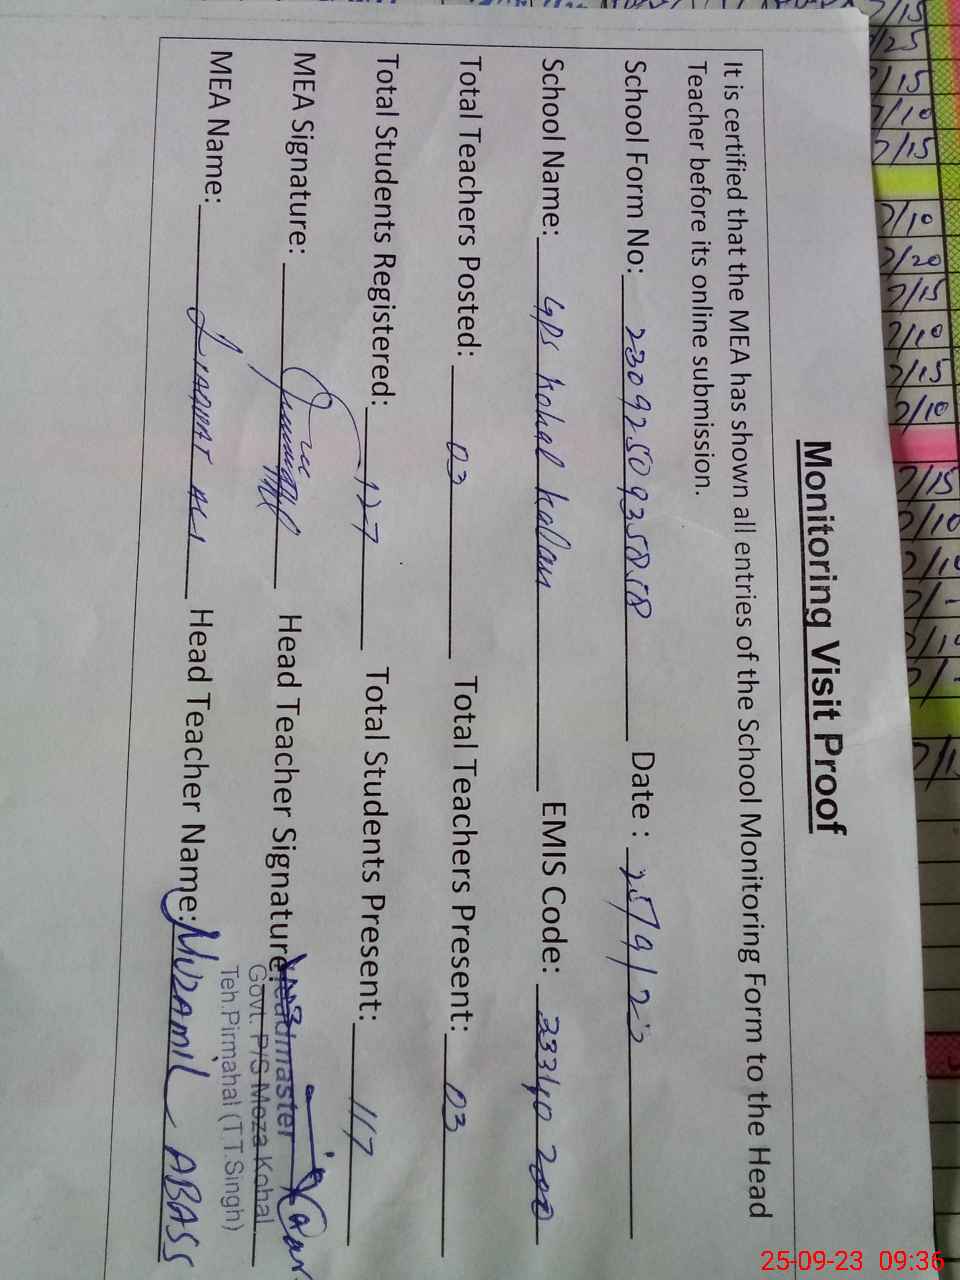 Monitoring Visit Proof
It is certified that the MEA has shown all entries of the School Monitoring Form to the Head
Teacher before its online submission.
School Form No: 230925093558 Date : 25/9/23
School Name: GPS Kohal Kalan EMIS Code: 33340200
Total Teachers Posted: 03 Total Teachers Present: 03
Total Students Registered: 127 Total Students Present: 117
MEA Signature: Head Teacher Signature: Headmaster
Govt. P/S Moza Kohal
Teh.Pirmahal (T.T.Singh)
MEA Name: LIAQAT ALI Head Teacher Name: MUZAMIL ABASS
25-09-23 09:36